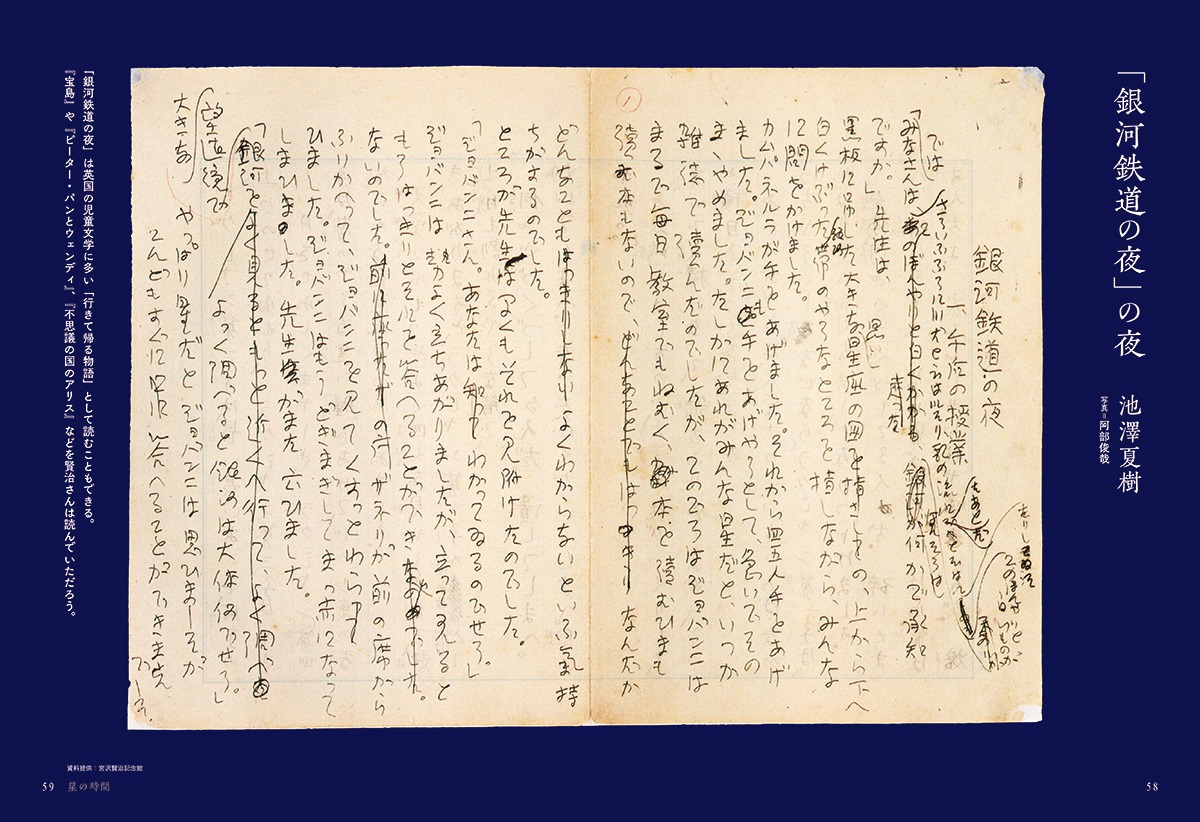 「銀河鉄道の夜」の夜
池澤夏樹
写真=阿部俊哉
銀河鉄道の夜
一、午后の授業
「ではみなさんは、さういふふうに川だと云はれたり、乳の流れたあとだと云はれたりしてゐた
このぼんやりと白いものが
銀河が何かご承知
ですか。」先生は、
黒板に吊した大きな黒い星座の図を指さしながらの、上から下へ
白くけぶった銀河帯のやうなところを指しながら、みんなに
問をかけました。
カムパネルラが手をあげました。それから四五人手をあげ
ました。ジョバンニも手をあげやうとして、急いでその
まゝやめました。たしかにあれがみんな星だと、いつか
雑誌で読んだのでしたが、このごろはジョバンニは
まるで毎日教室でもねむく、本を読むひまも
読む本もないので、なんだか
どんなこともよくわからないといふ気持
ちがするのでした。
ところが先生は早くもそれを見附けたのでした。
「ジョバンニさん。あなたはわかってゐるのでせう。」
ジョバンニは勢よく立ちあがりましたが、立って見ると
もうはっきりとそれを答へることができないのでした。
ザネリが前の席から
ふりかへって、ジョバンニを見てくすっとわらひ
ました。ジョバンニはもうどぎまぎしてまっ赤になって
しまひました。先生がまた云ひました。
「大きな望遠鏡で銀河をよっく調べると銀河は大体何でせう。」
やっぱり星だとジョバンニは思ひましたが
こんどもすぐに答へることができませんでした。
「銀河鉄道の夜」は英国の児童文学に多い「行きて帰る物語」として読むこともできる。
『宝島』や『ピーター・パンとウェンディ』、『不思議の国のアリス』などを賢治さんは読んでいただろう。
資料提供:宮沢賢治記念館
59 星の時間
58